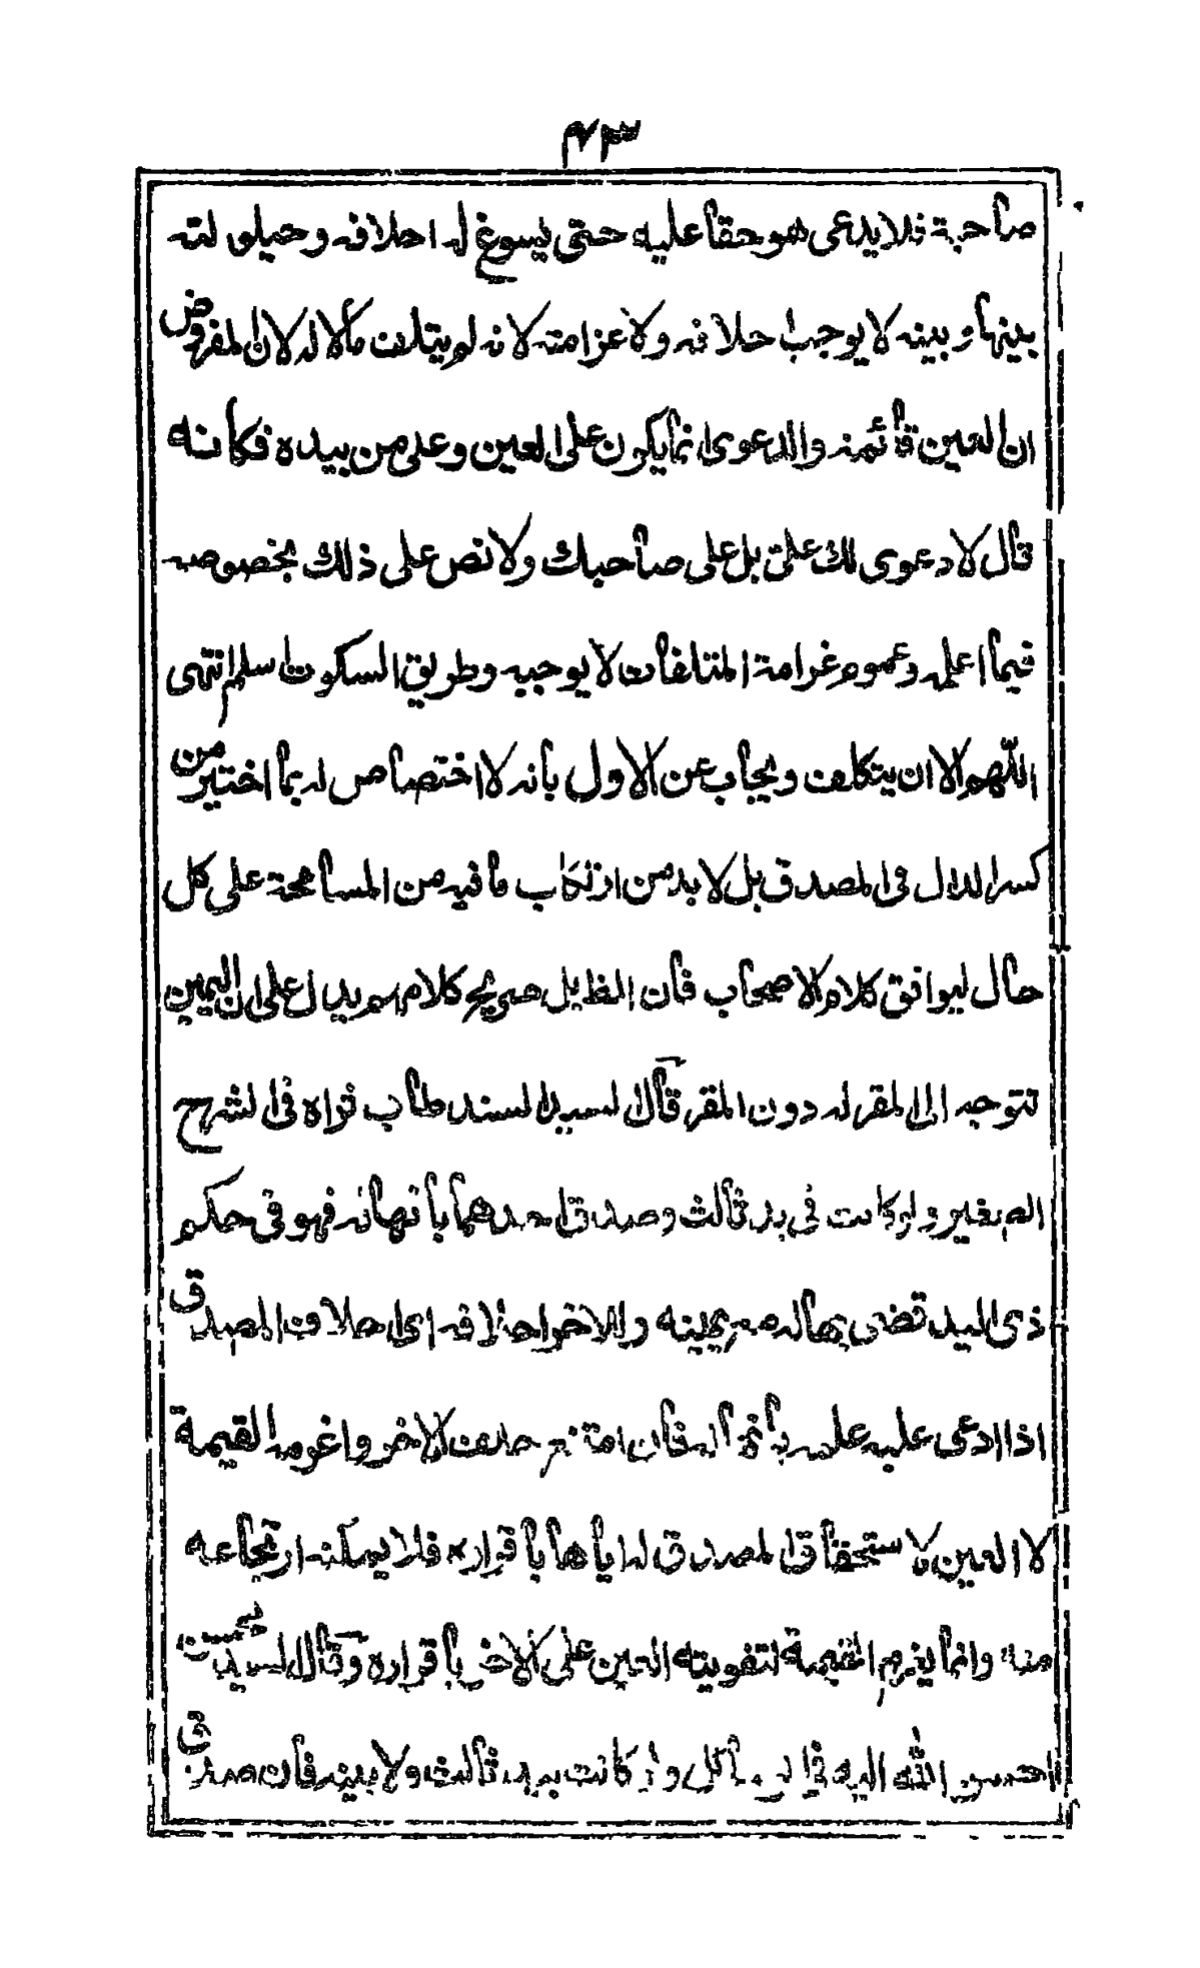 ٤٣
صاحبة فلا يدعى هو حقا عليه حتى يسوغ له احلافه وحيلولته
بينها وبينه لا يوجب احلافه ولا غرامته لانه لم يتلف مالا له لان المفروض
ان العين قائمة والدعوى انما يكون على العين وعلى من بيده فكانه
قال لا دعوى لك على بل على صاحبك ولا نص على ذلك بخصوصه
فيما اعلمه وعموم غرامة المتلفات لا يوجبه وطريق السكوت اسلم انتهى
اللهم الا ان يتكلف ويجاب عن الاول بانه لا اختصاص له بما اختير من
كسر الدال فى المصدق بل لا بد من ارتكاب ما فيه من المسامحة على كل
حال ليوافق كلام الاصحاب فان الظ بل صريح كلامهم يدل على ان اليمين
تتوجه الى المقر له دون المقر قال السيد السند طاب ثراه فى الشرح
الصغير ولو كانت فى يد ثالث وصدق احدهما بانها له فهو فى حكم
ذى اليد قضى بها له مع يمينه وللاخر احلافه اى احلاف المصدق
اذا ادعى عليه علمه بانها له فان امتنع حلف الاخر واغرمه القيمة
لا العين لاستحقاق المصدق له اياها باقراره فلا يمكنه ارتجاعه
منه وانما يغرم القيمة لتفويته العين على الاخر باقراره وقال السيد
احسن الله اليه فى ولو كانت بيد ثالث ولا بينه فان صدق